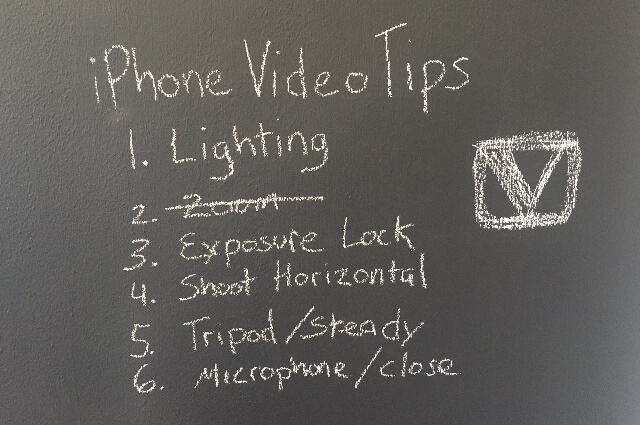 iPhone Video Tips
1. Lighting
2. Zoom
3. Exposure Lock
4. Shoot Horizontal
5. Tripod/Steady
6. Microphone/close
V